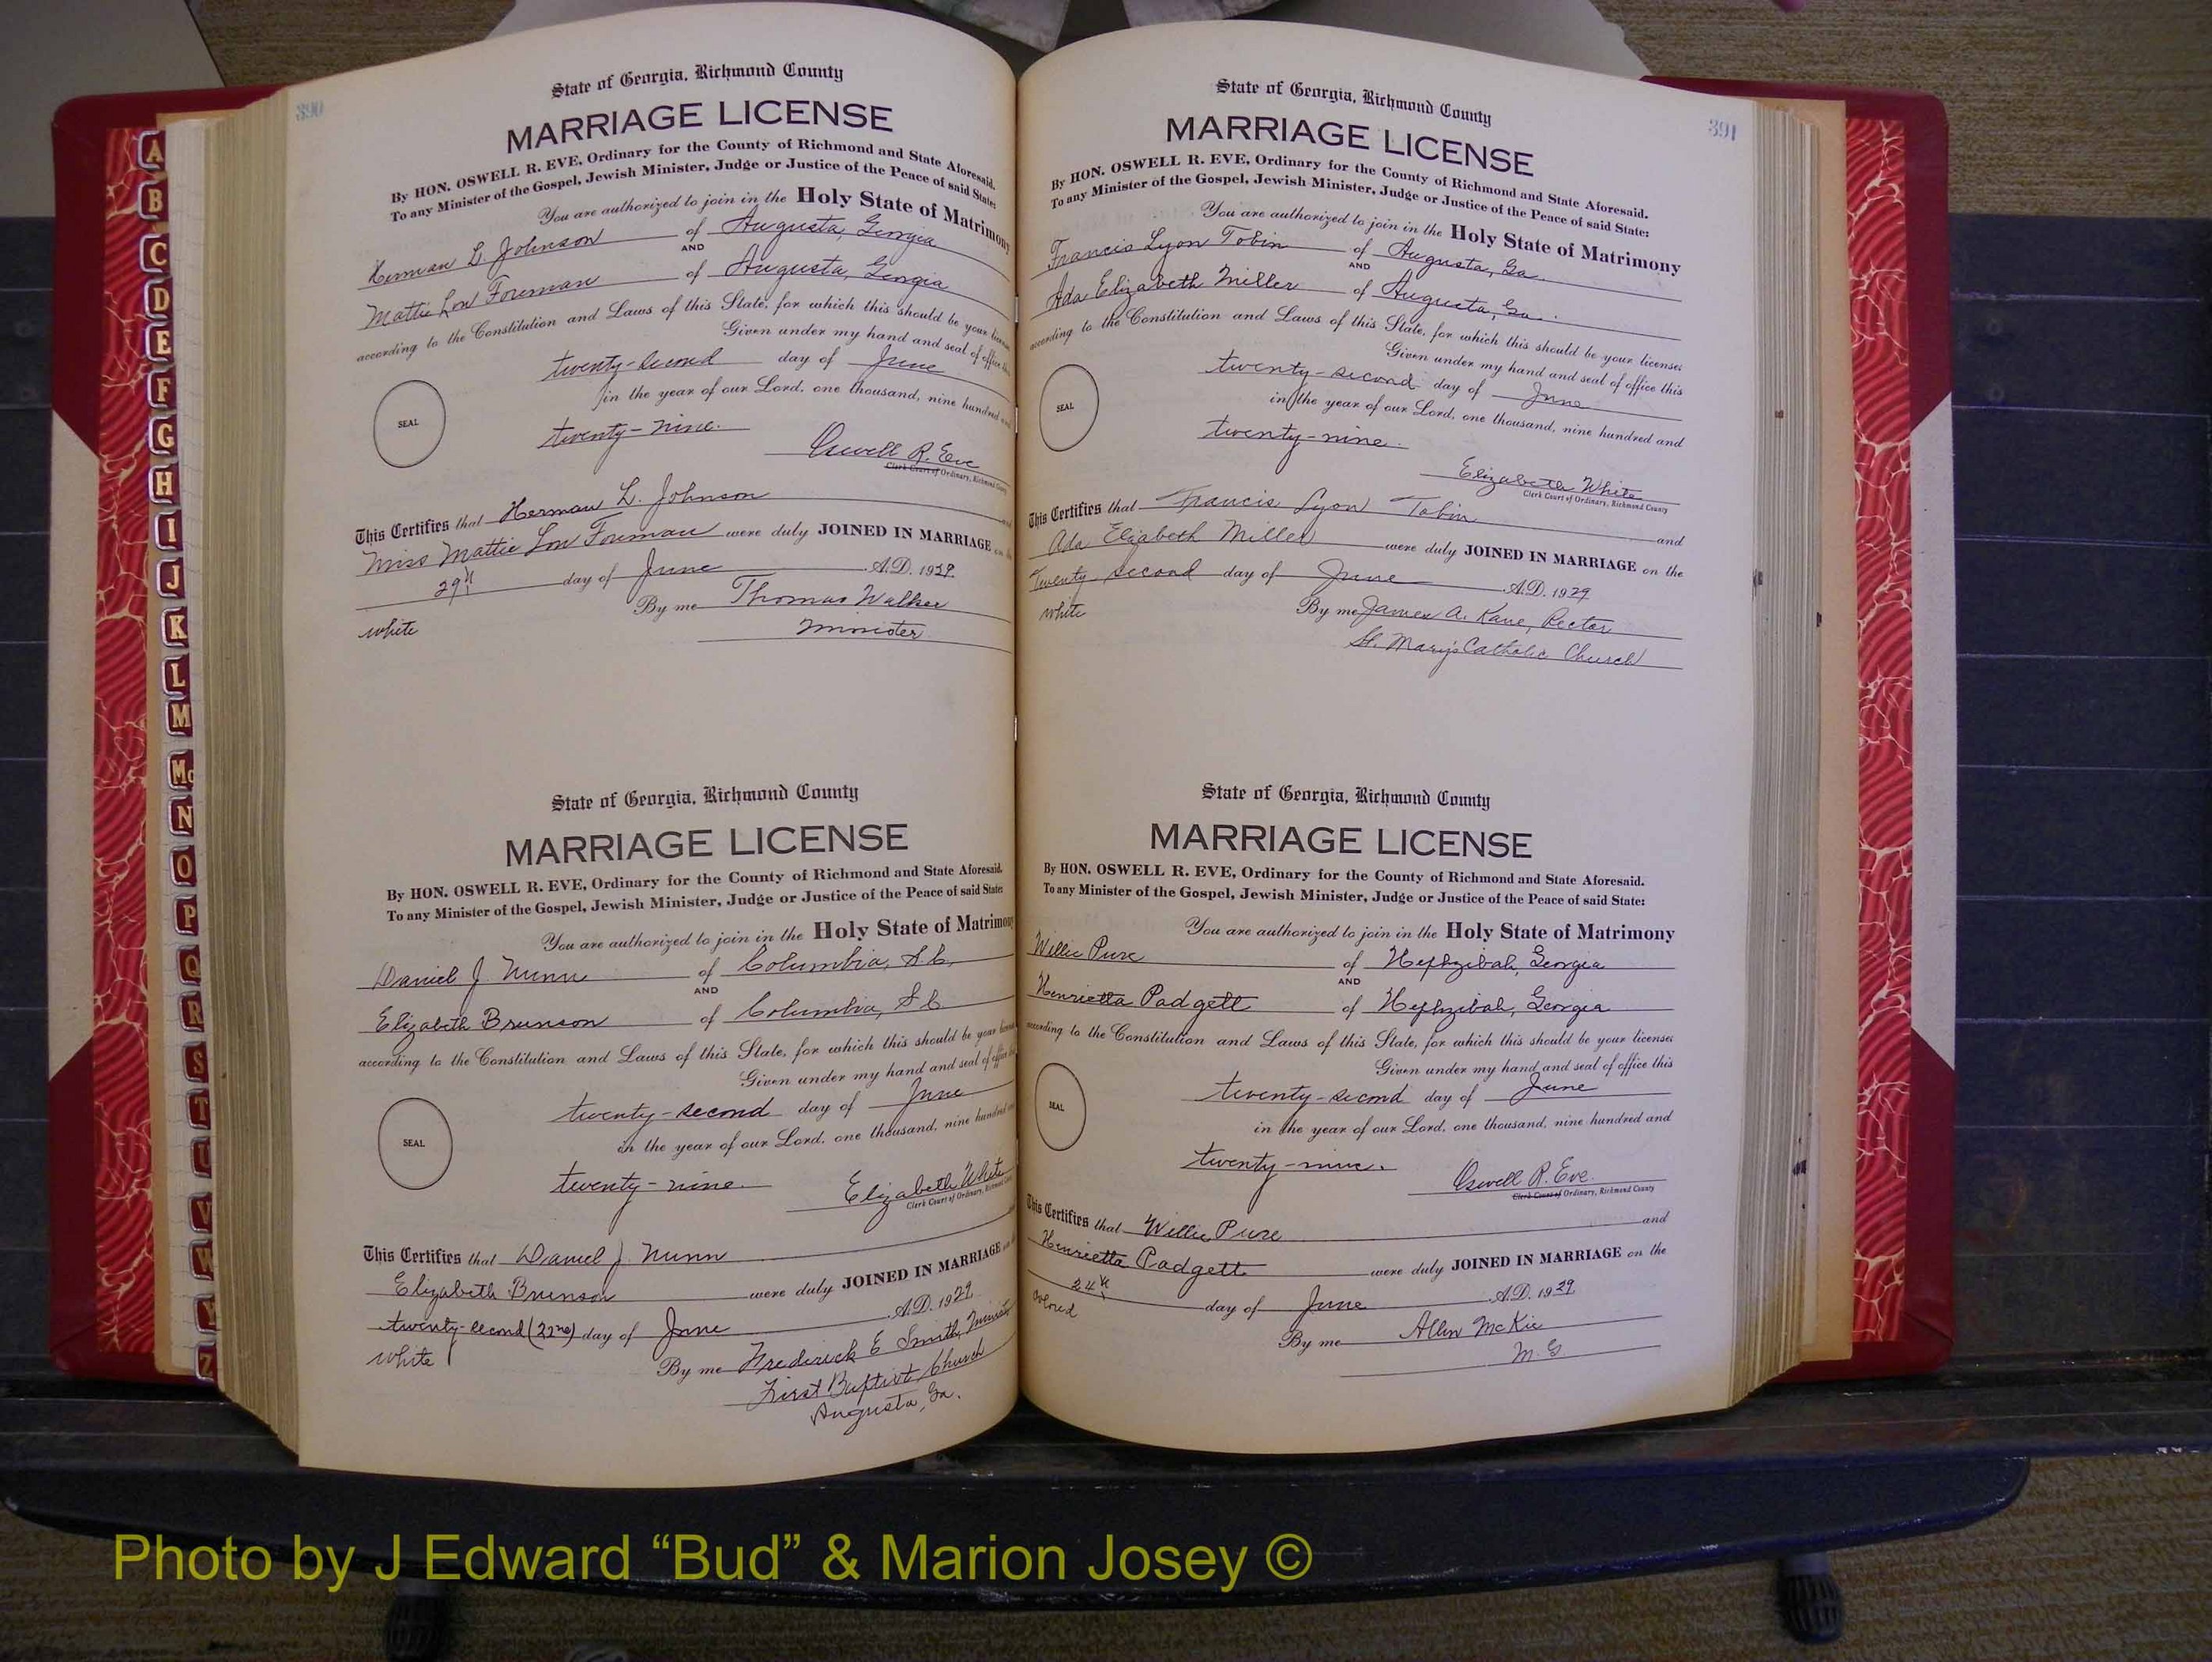 390
State of Georgia, Richmond County
MARRIAGE LICENSE
By HON. OSWELL R. EVE, Ordinary for the County of Richmond and State Aforesaid.
To any Minister of the Gospel, Jewish Minister, Judge or Justice of the Peace of said State:
You are authorized to join in the Holy State of Matrimony
Herman L. Johnson of Augusta, Georgia
AND
Mattie Lou Foreman of Augusta, Georgia
according to the Constitution and Laws of this State, for which this should be your
Given under my hand and seal of office
twenty-second day of June
in the year of our Lord, one thousand, nine hundred
SEAL
twenty-nine.
Oswell R. Eve
Clerk Court of Ordinary, Richmond
This Certifies that Herman L. Johnson
Miss Mattie Lou Foreman were duly JOINED IN MARRIAGE
29th day of June A.D. 1929
By me Thomas Walker
white
minister
State of Georgia, Richmond County
MARRIAGE LICENSE
By HON. OSWELL R. EVE, Ordinary for the County of Richmond and State Aforesaid.
To any Minister of the Gospel, Jewish Minister, Judge or Justice of the Peace of said State:
You are authorized to join in the Holy State of Matrimony
Daniel J Nunn of Columbia, S.C.
AND
Elizabeth Brunson of Columbia, S C
according to the Constitution and Laws of this State, for which this should be your
Given under my hand and seal of
twenty-second day of June
in the year of our Lord, one thousand, nine hundred
SEAL
twenty-nine.
Elizabeth White
Clerk Court of Ordinary,
This Certifies that Daniel J. Nunn
Elizabeth Brunson were duly JOINED IN MARRIAGE
twenty-second (22nd) day of June A.D. 1929
white
By me Frederick E Smith, Minister
First Baptist Church
Augusta, Ga.
391
State of Georgia, Richmond County
MARRIAGE LICENSE
By HON. OSWELL R. EVE, Ordinary for the County of Richmond and State Aforesaid.
To any Minister of the Gospel, Jewish Minister, Judge or Justice of the Peace of said State:
You are authorized to join in the Holy State of Matrimony
Francis Lyon Tobin of Augusta, Ga.
AND
Ada Elizabeth Miller of Augusta, Ga.
according to the Constitution and Laws of this State, for which this should be your license:
Given under my hand and seal of office this
twenty-second day of June
in the year of our Lord, one thousand, nine hundred and
SEAL
twenty-nine.
Elizabeth White
Clerk Court of Ordinary, Richmond County
This Certifies that Francis Lyon Tobin and
Ada Elizabeth Miller were duly JOINED IN MARRIAGE on the
Twenty second day of June A.D. 1929
white
By me James A. Kane, Rector
St. Mary's Catholic Church
State of Georgia, Richmond County
MARRIAGE LICENSE
By HON. OSWELL R. EVE, Ordinary for the County of Richmond and State Aforesaid.
To any Minister of the Gospel, Jewish Minister, Judge or Justice of the Peace of said State:
You are authorized to join in the Holy State of Matrimony
Willie Pure of Hephzibah, Georgia
AND
Henrietta Padgett of Hephzibah, Georgia
according to the Constitution and Laws of this State, for which this should be your license:
Given under my hand and seal of office this
twenty-second day of June
SEAL
in the year of our Lord, one thousand, nine hundred and
twenty-nine.
Oswell R. Eve.
Clerk Court of Ordinary, Richmond County
This Certifies that Willie Pure and
Henrietta Padgett were duly JOINED IN MARRIAGE on the
24th day of June A.D. 1929
Colored
By me Allen McKie
M. G
A
B
C
D
E
F
G
H
I
J
K
L
M
Mc
N
O
P
Q
R
S
T
U
V
W
Y
Z
Photo by J Edward “Bud” & Marion Josey ©